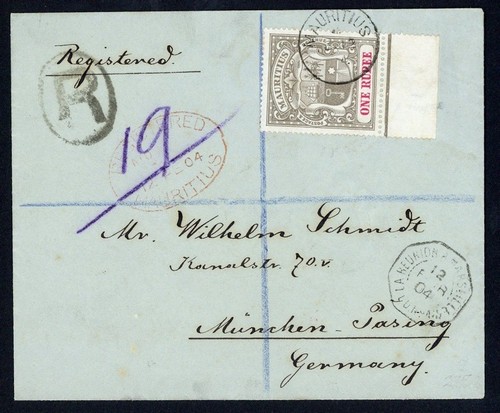 Registered.
R
MAURITIUS
MAURITIUS
ONE RUPEE
19
REGISTERED
04
MAURITIUS
Mr. Wilhelm Schmidt
Kanalstr. 70.v.
München-Pasing
Germany.
LA REUNION A MARSEILLE
12
04